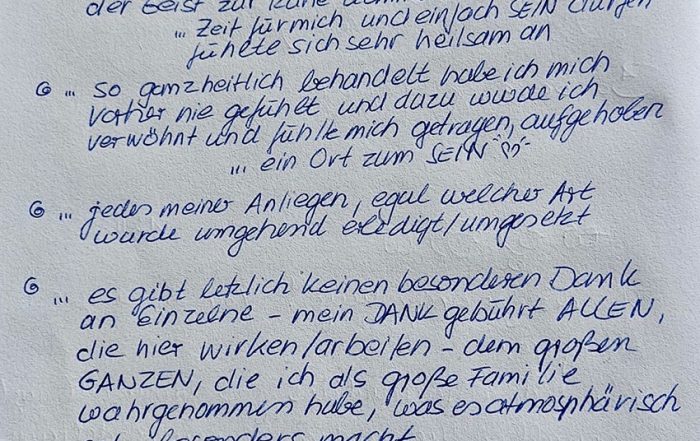 der Geist zur Ruhe
... Zeit für mich und einfach SEIN dürfen
fühlte sich sehr heilsam an
... so ganzheitlich behandelt habe ich mich
vorher nie gefühlt und dazu wurde ich
verwöhnt und fühlte mich getragen, aufgehoben
... ein Ort zum SEIN
... jedes meiner Anliegen, egal welcher Art
wurde umgehend erledigt/umgesetzt
... es gibt letzlich keinen besonderen Dank
an Einzelne - mein DANK gebührt ALLEN,
die hier wirken/arbeiten - dem großen
GANZEN, die ich als große Familie
wahrgenommen habe, was es atmosphärisch
besonders macht